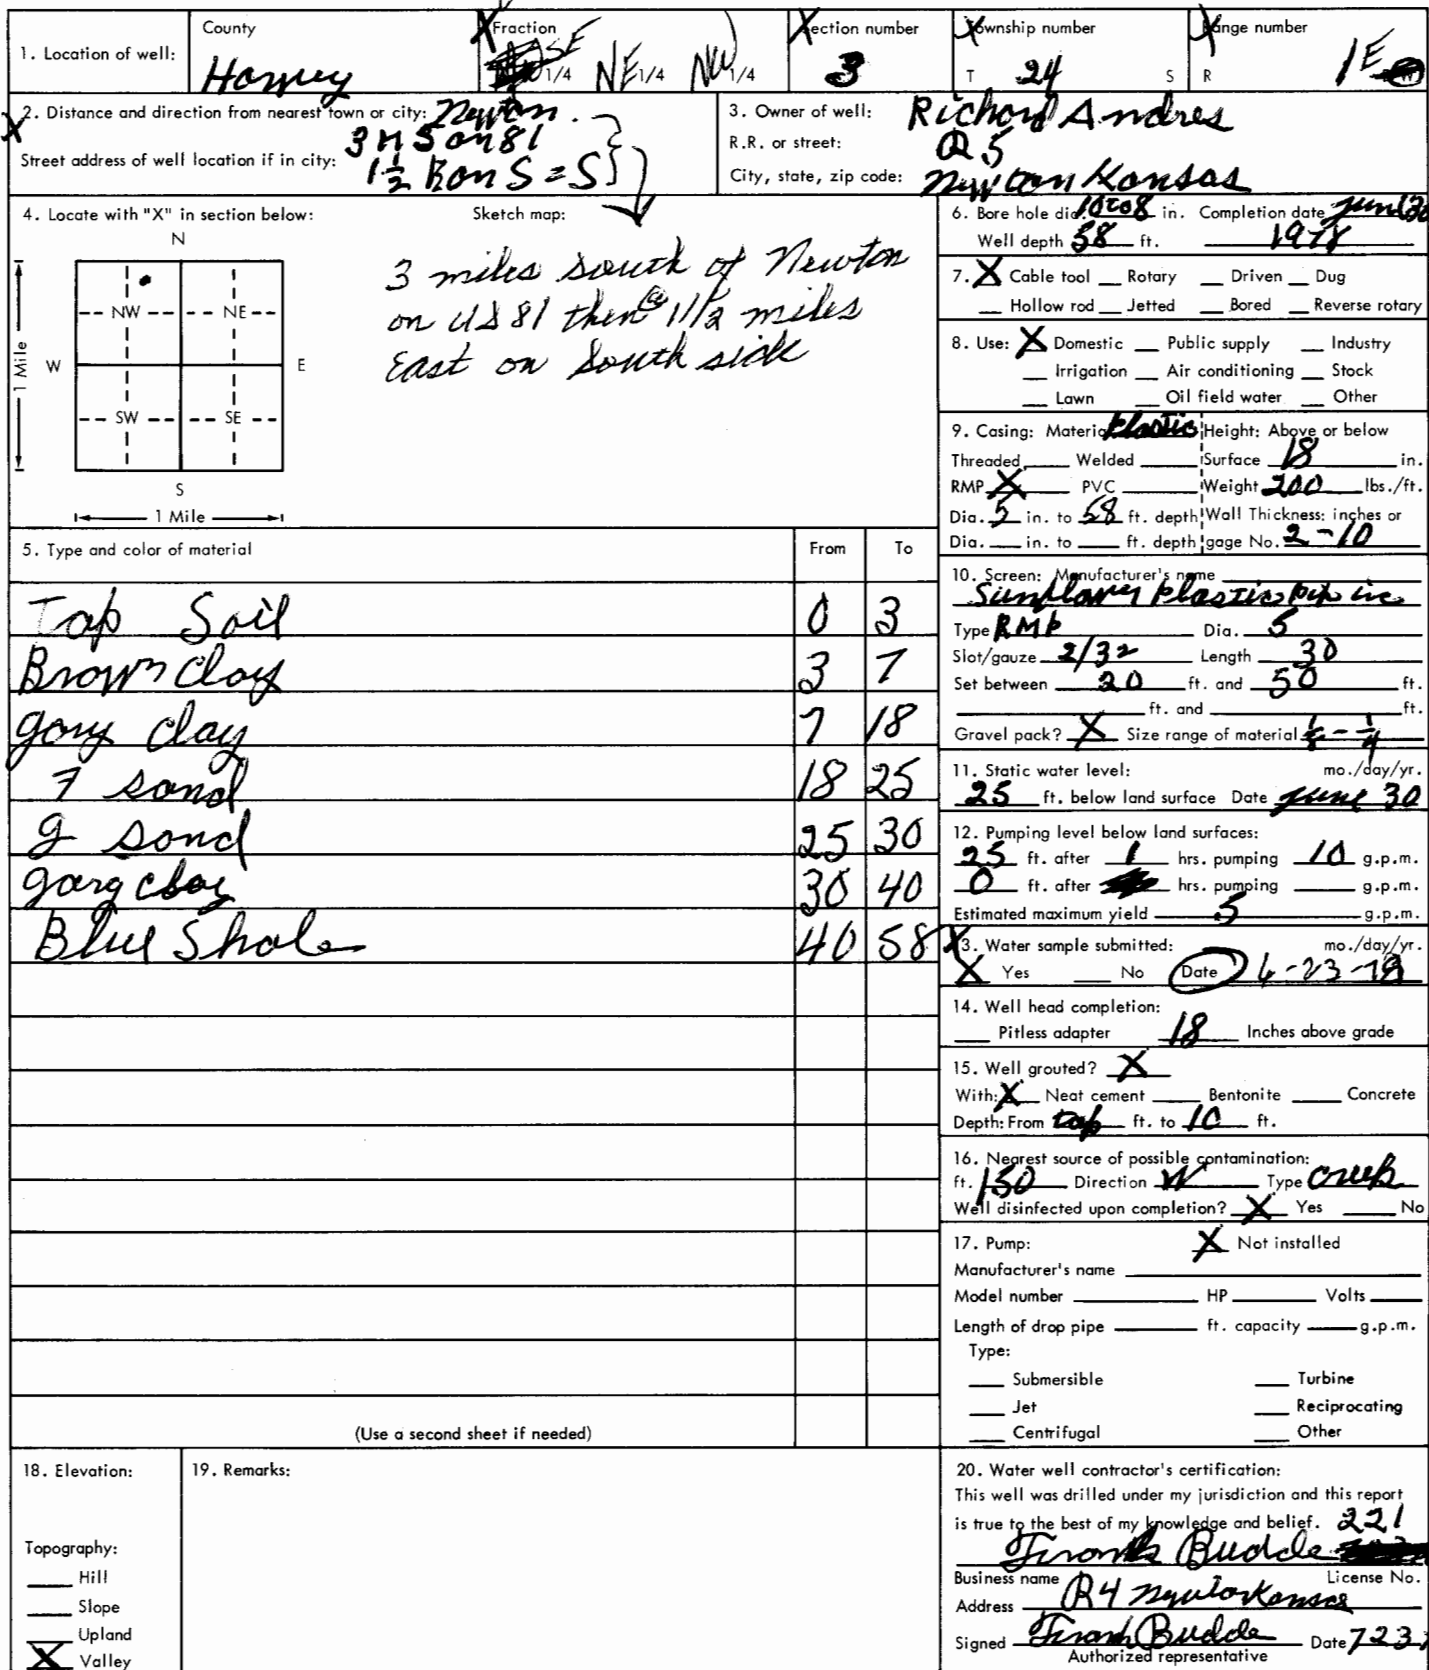 1. Location of well:
County
Harvey
Fraction
SE 1/4 NE 1/4 NW 1/4
Section number
3
Township number
T 24 S
Range number
R 1E
2. Distance and direction from nearest town or city: Newton
3 M S on 81
Street address of well location if in city:
1½ E on S = S
3. Owner of well: Richard Andres
R.R. or street: R 5
City, state, zip code: Newton Kansas
4. Locate with "X" in section below:
N
NW NE
W E
SW SE
S
1 Mile
1 Mile
Sketch map:
3 miles south of Newton
on US 81 then 1 1/2 miles
East on South side
5. Type and color of material From To
Top Soil 0 3
Brown Clay 3 7
gary clay 7 18
F sand 18 25
g sand 25 30
gary clay 30 40
Blue Shale 40 58
(Use a second sheet if needed)
6. Bore hole dia. 10 to 8 in. Completion date June 30
Well depth 58 ft. 1978
7. X Cable tool Rotary Driven Dug
Hollow rod Jetted Bored Reverse rotary
8. Use: X Domestic Public supply Industry
Irrigation Air conditioning Stock
Lawn Oil field water Other
9. Casing: Material Plastic Height: Above or below
Threaded Welded Surface 18 in.
RMP X PVC Weight 200 lbs./ft.
Dia. 5 in. to 58 ft. depth Wall Thickness: inches or
Dia. in. to ft. depth gage No. 2-10
10. Screen: Manufacturer's name
Sunflower Plastic pip inc
Type RMP Dia. 5
Slot/gauze 2/32 Length 30
Set between 20 ft. and 50 ft.
ft. and ft.
Gravel pack? X Size range of material 1/8 - 1/4
11. Static water level: mo./day/yr.
25 ft. below land surface Date June 30
12. Pumping level below land surfaces:
25 ft. after 1 hrs. pumping 10 g.p.m.
0 ft. after hrs. pumping g.p.m.
Estimated maximum yield 5 g.p.m.
13. Water sample submitted: mo./day/yr.
X Yes No Date 6-23-78
14. Well head completion:
Pitless adapter 18 Inches above grade
15. Well grouted? X
With: X Neat cement Bentonite Concrete
Depth: From top ft. to 10 ft.
16. Nearest source of possible contamination:
ft. 150 Direction W Type Creek
Well disinfected upon completion? X Yes No
17. Pump: X Not installed
Manufacturer's name
Model number HP Volts
Length of drop pipe ft. capacity g.p.m.
Type:
Submersible Turbine
Jet Reciprocating
Centrifugal Other
18. Elevation:
Topography:
Hill
Slope
Upland
X Valley
19. Remarks:
20. Water well contractor's certification:
This well was drilled under my jurisdiction and this report
is true to the best of my knowledge and belief. 221
Frank Budde
Business name License No.
Address R4 Newton Kansas
Signed Frank Budde Date 7 23
Authorized representative